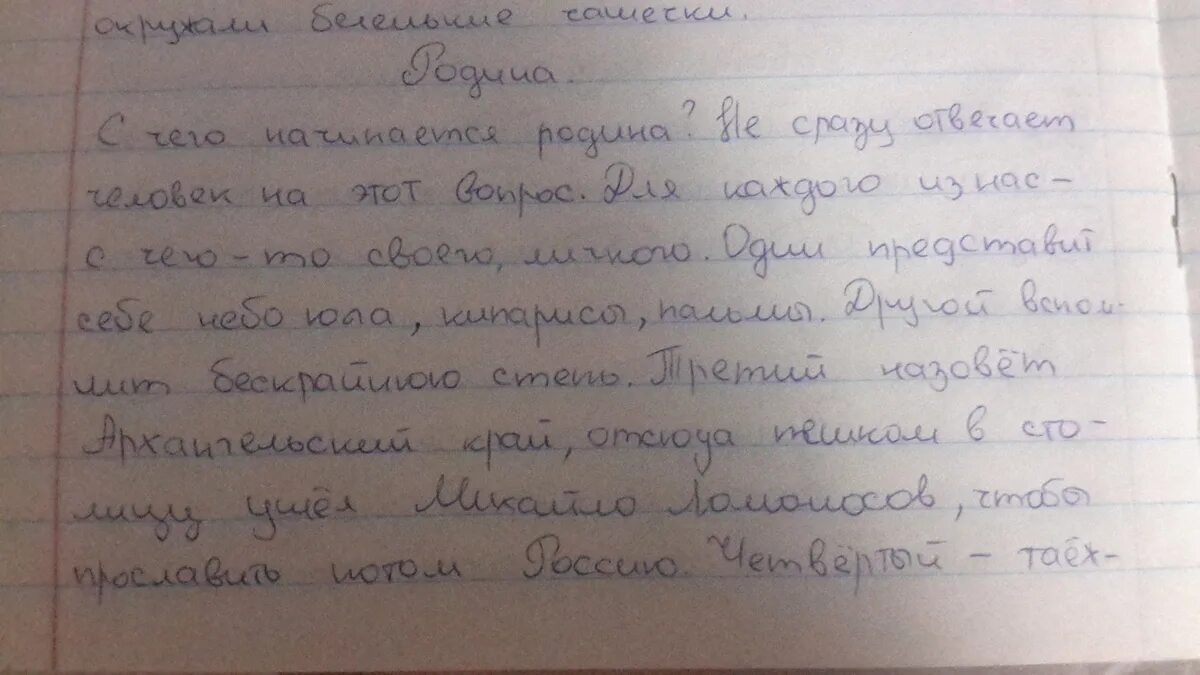 окружали беленькие чашечки.
Родина.
С чего начинается родина? Не сразу отвечает
человек на этот вопрос. Для каждого из нас –
с чего-то своего, личного. Один представит
себе небо юга, кипарисы, пальмы. Другой вспом-
нит бескрайнюю степь. Третий назовёт
Архангельский край, отсюда пешком в сто-
лицу ушёл Микайло Ломоносов, чтобы
прославить потом Россию. Четвёртый – таёж-